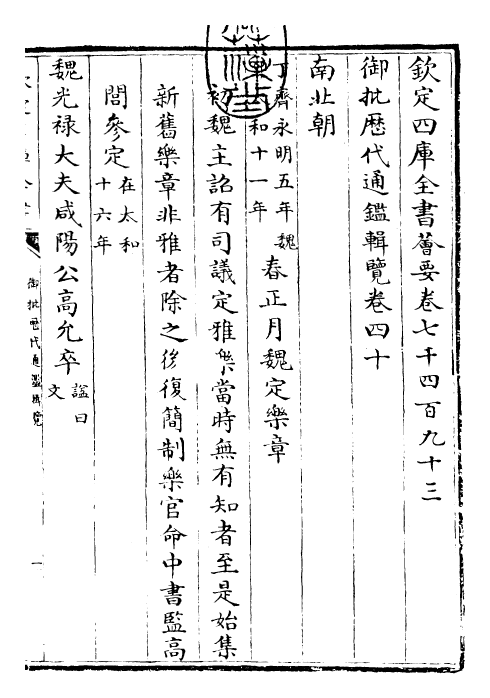 欽定四庫全書薈要卷七千四百九十三
御批歷代通鑑輯覽卷四十
南北朝
丁 齊永明五年魏
和十一年
春正月魏定樂章
初魏主詔有司議定雅樂當時無有知者至是始集
新舊樂章非雅者除之後復簡制樂官命中書監高
閭參定在太和
十六年
魏光禄大夫咸陽公高允卒諡曰
文
御批歷代通鑑輯覽
一